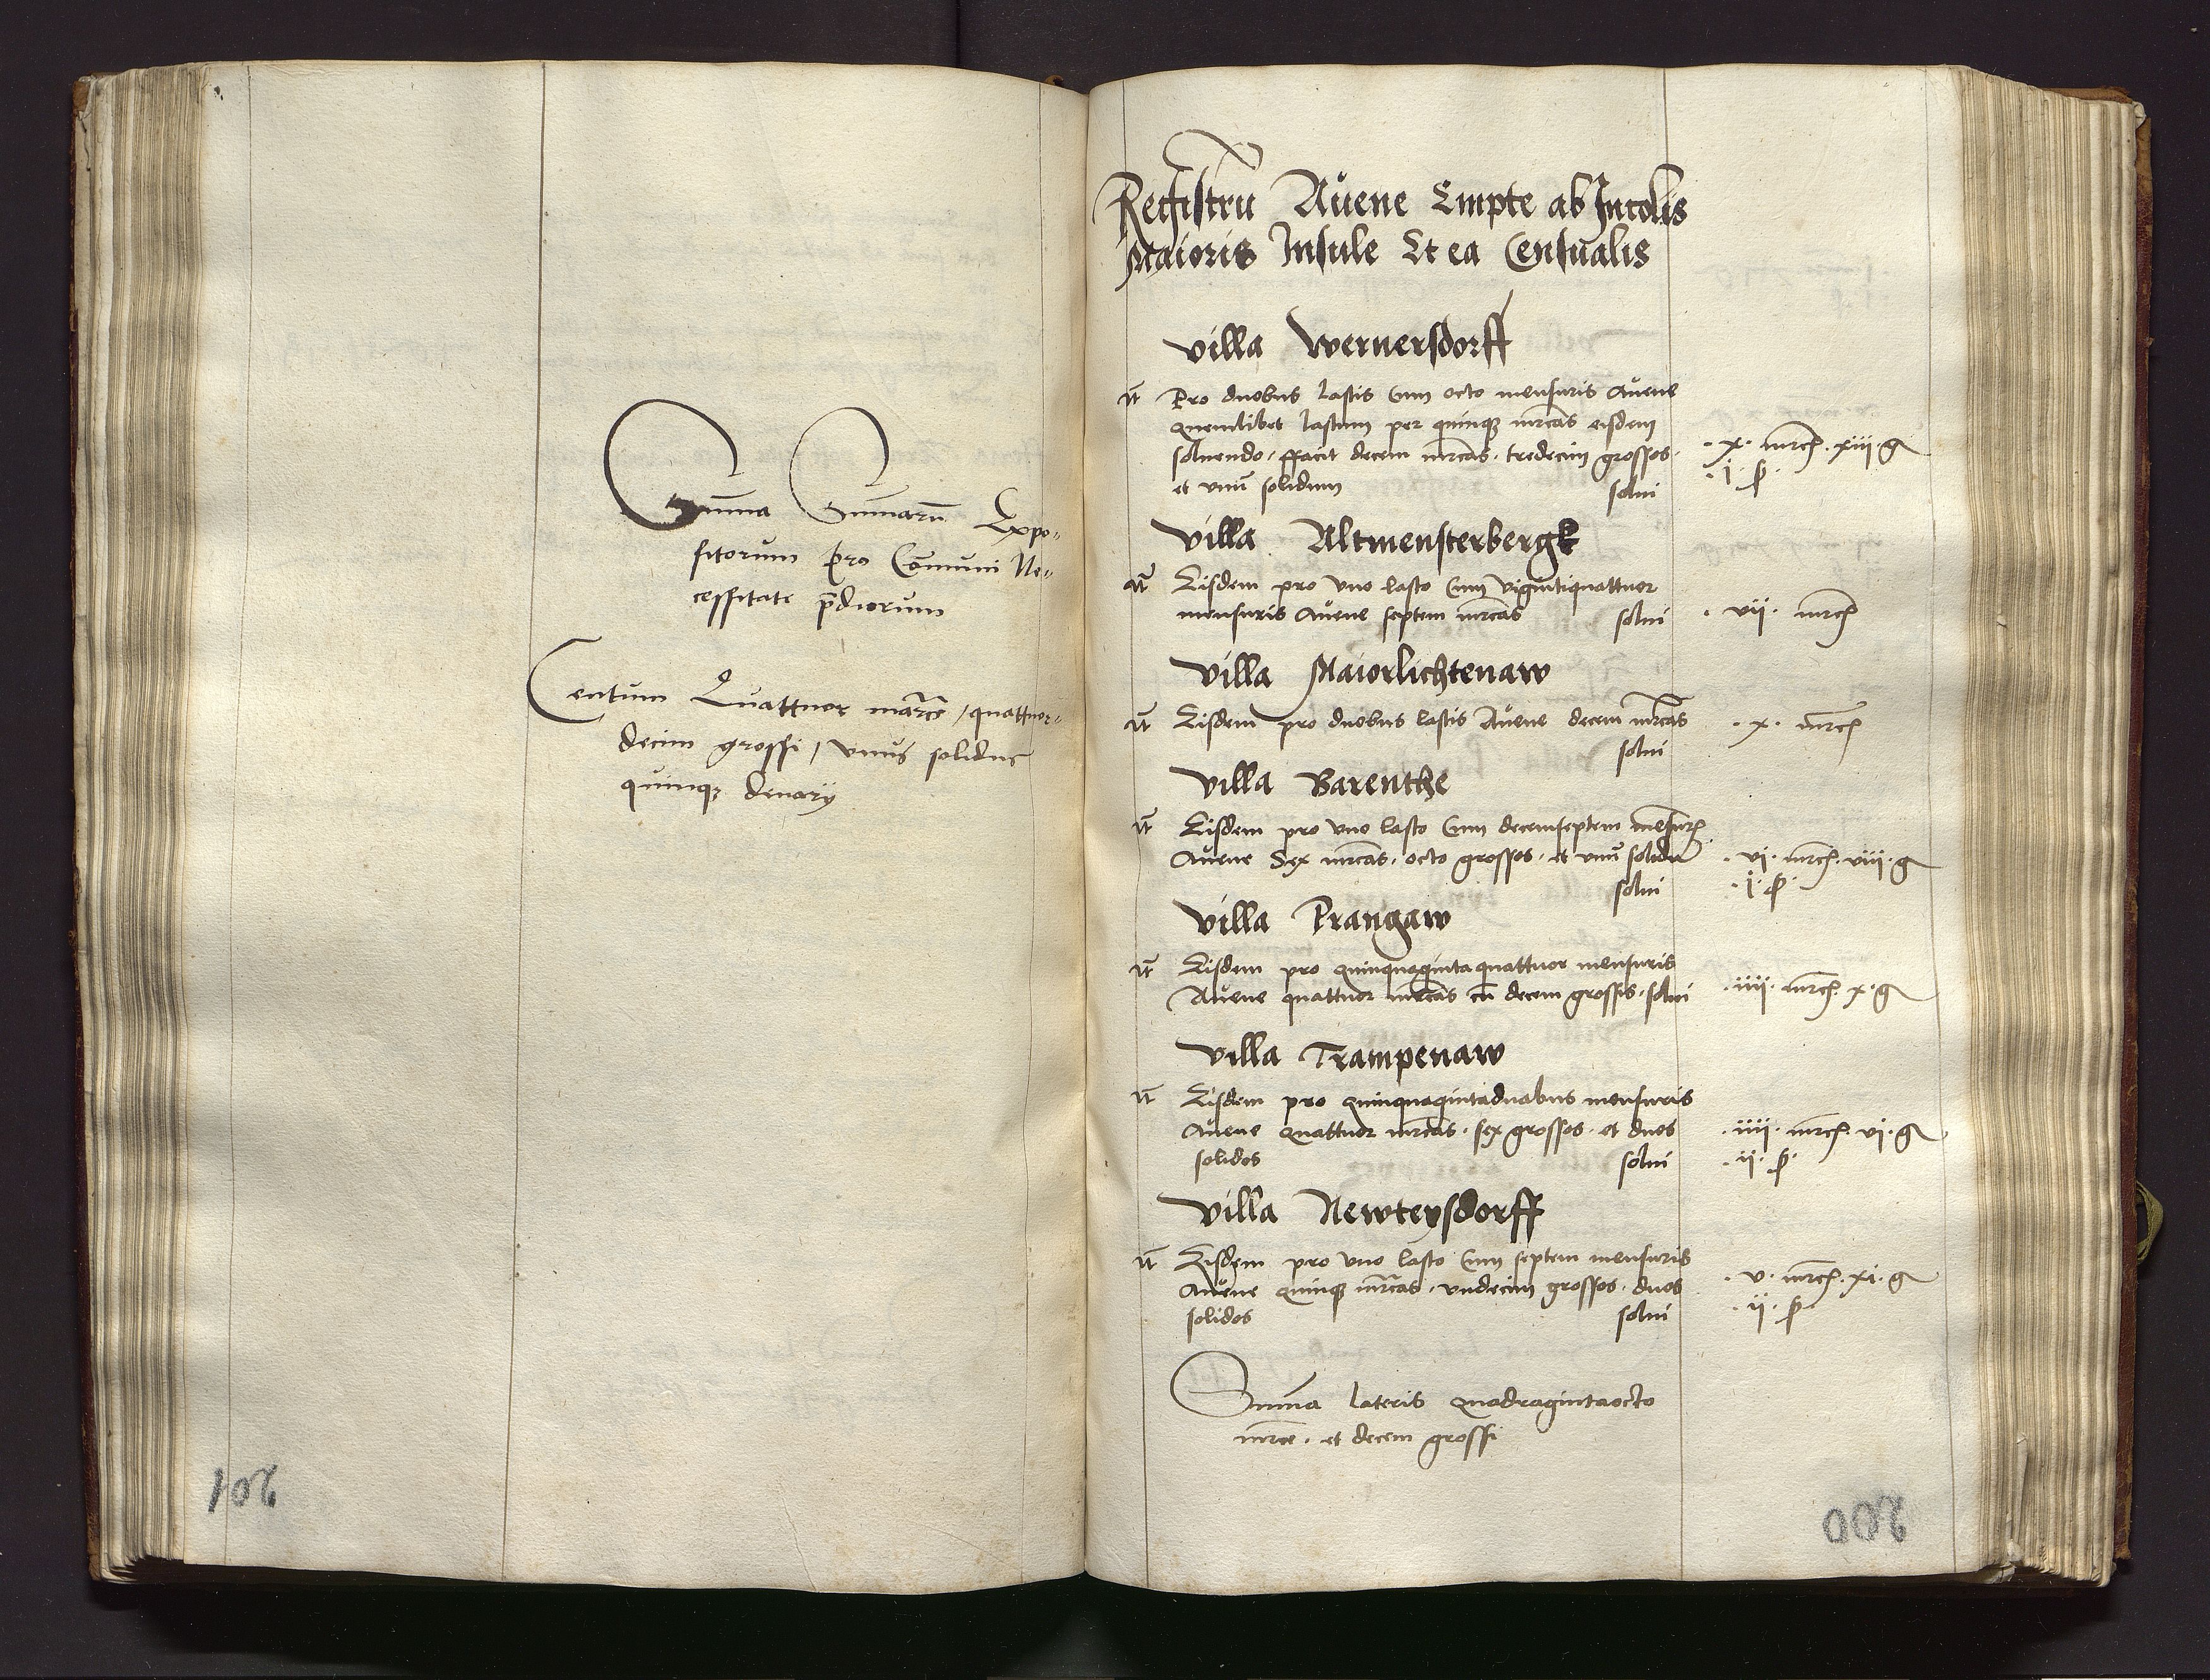 Sum̄a Sum̄arū Expo„
sitorum pro Com̄uni Ne„
cessitate p̄diorum
Centum Quattuor marce / quattuor„
decim grossi / vnus solidus
quinqꝫ denarij
201
Registrū Auene Empte ab Incolis
Maioris Insule Et ea Censualis
Villa Wernersdorff
Pro duobus lastis Cum octo mensuris Auene
quemlibet lastum per quinqꝫ mrcas eisdem
soluendo, ffacit decem mrcas, tredecim grossos,
et vnū solidum solui
·x· mrc. xiii·g
·i·ß·
Villa Altmensterbergk
Eisdem pro vno lasto Cum vigintiquattuor
mensuris Auene septem mrcas solui
·vii· mrc
Villa Maiorlichtenaw
Eisdem pro duobus lastis Auene decem mrcas
solui
·x· mrc
Villa Barenthe
Eisdem pro vno lasto Cum decemseptem mesur
Auene Sex mrcas, octo grossos, et vnū solidū
solui
·vi· mrc. viii·g
·i·ß·
Villa Prangaw
Eisdem pro quinquagintaquattuor mensuris
Auene quattuor mrcas cū decem grossis, solui
·iiii· mrc. x·g
Villa Trampenaw
Eisdem pro quinquagintaduabus mensuris
Auene quattuor mrcas, sex grossos, et duos
solidos solui
·iiii· mrc. vi·g
·ii·ß·
Villa Newteysdorff
Eisdem pro vno lasto Cum septem mensuris
Auene quinqꝫ mrcas, vndecim grossos, duos
solidos solui
·v· mrc. xi·g
·ii·ß·
Sum̄a lateris quadragintaocto
mrce, et decem grossi
200